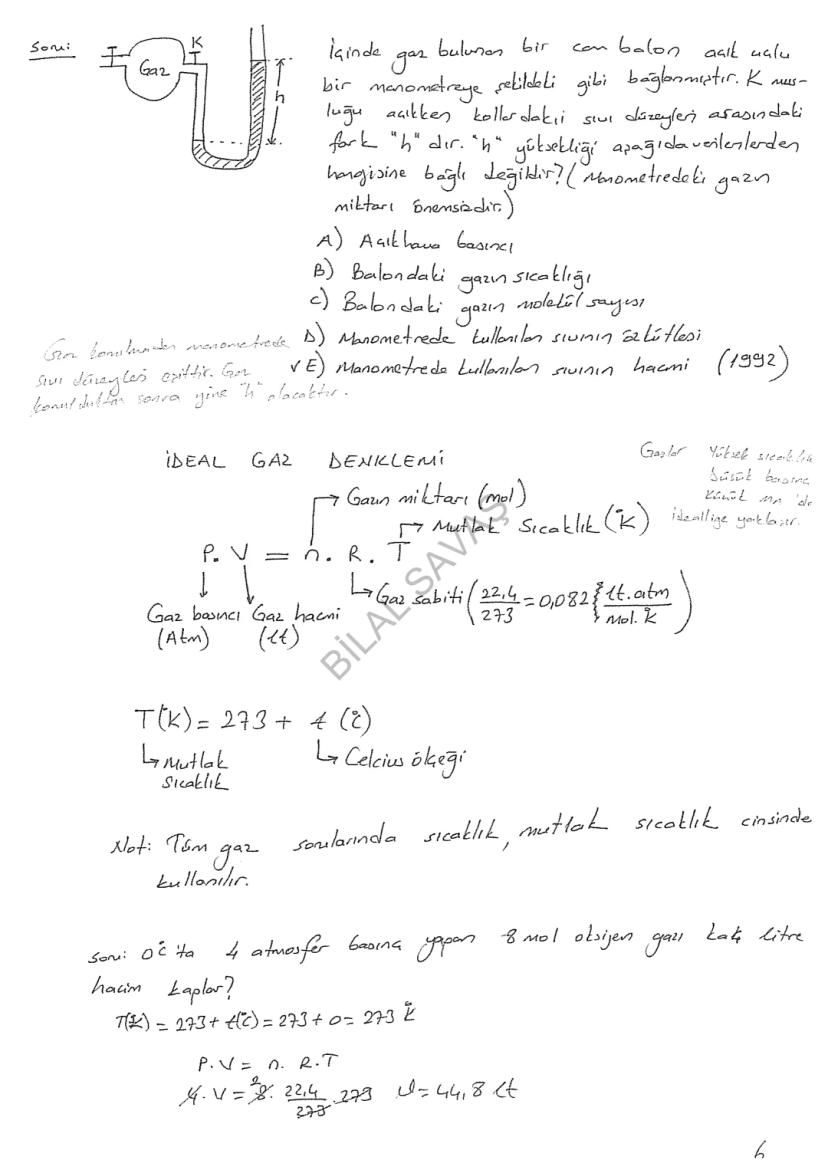 Soru:
K
Gaz
h
İçinde gaz bulunan bir cam balon açık uçlu
bir manometreye şekildeki gibi bağlanmıştır. K mus-
luğu açıkken kollardaki sıvı düzeyleri arasındaki
fark "h" dır. "h" yüksekliği aşağıda verilenlerden
hangisine bağlı değildir? (Manometredeki gazın
miktarı önemsizdir.)
A) Açıkhava basıncı
B) Balondaki gazın sıcaklığı
C) Balondaki gazın molekül sayısı
D) Manometrede kullanılan sıvının özkütlesi
√ E) Manometrede kullanılan sıvının hacmi (1992)
Gaz konulmadan manometrede
sıvı düzeyleri eşittir. Gaz
konulduktan sonra yine "h" olacaktır.
İDEAL GAZ DENKLEMİ
Gazlar Yüksek sıcaklık
düşük basınç
idealliğe yaklaşır.
Gazın miktarı (mol)
Mutlak Sıcaklık (°K)
P. V = n. R. T
Gaz sabiti (22,4/273 = 0,082 {lt.atm/Mol.°K)
Gaz basıncı Gaz hacmi
(Atm) (lt)
BİLAL SAVAŞ
T(°K) = 273 + t (°C)
Mutlak Sıcaklık
Celcius ölçeği
Not: Tüm gaz sorularında sıcaklık, mutlak sıcaklık cinsinde
kullanılır.
Soru: 0°C'ta 4 atmosfer basınç yapan 8 mol oksijen gazı kaç litre
hacim kaplar?
T(°K) = 273 + t(°C) = 273 + 0 = 273 °K
P.V = n. R.T
4.V = 8. 22,4/273 .273 V = 44,8 lt
6